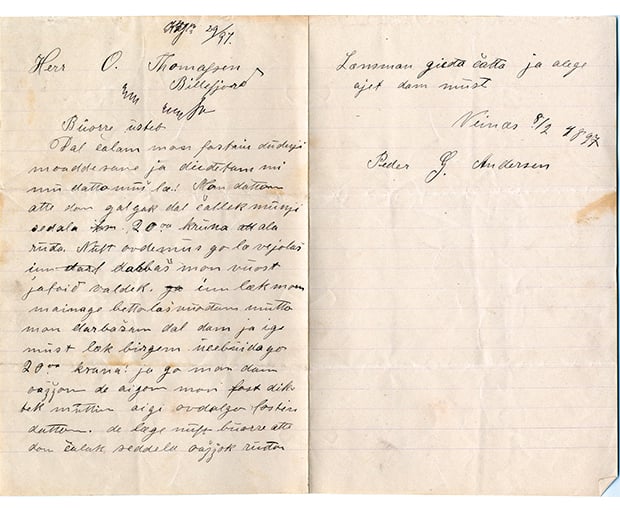 29/97.
Herr O. Thomassen
Billefjord
Buorre usteb
Dal čalam mon fastain dudnji
moaddesane ja diedetam mi
mu dattomuš læ! Man dattom
atte don galgak dal čallek munji
sedala 20 00 kruna attala
ruđa. Nuft ovdemus go la vejolaš
im dast dabbaš mon vuost
jatoid valdek. im læk mon
mainage bettolašvuođain mutto
mon darbašam dal dam ja ige
must læk birgem ucebuidago
20 00 kruna! ja go mon dam
oažžom de aigom mon fast dik
tek muttin aigi ovdalgo fastin
dattom. de læge nuft buorre atte
don čalak seddela oažžok ruđa
Lansman gieđa čađa ja alage
ajet dam must
Veinæs 8/2 1897
Peder G. Andersen